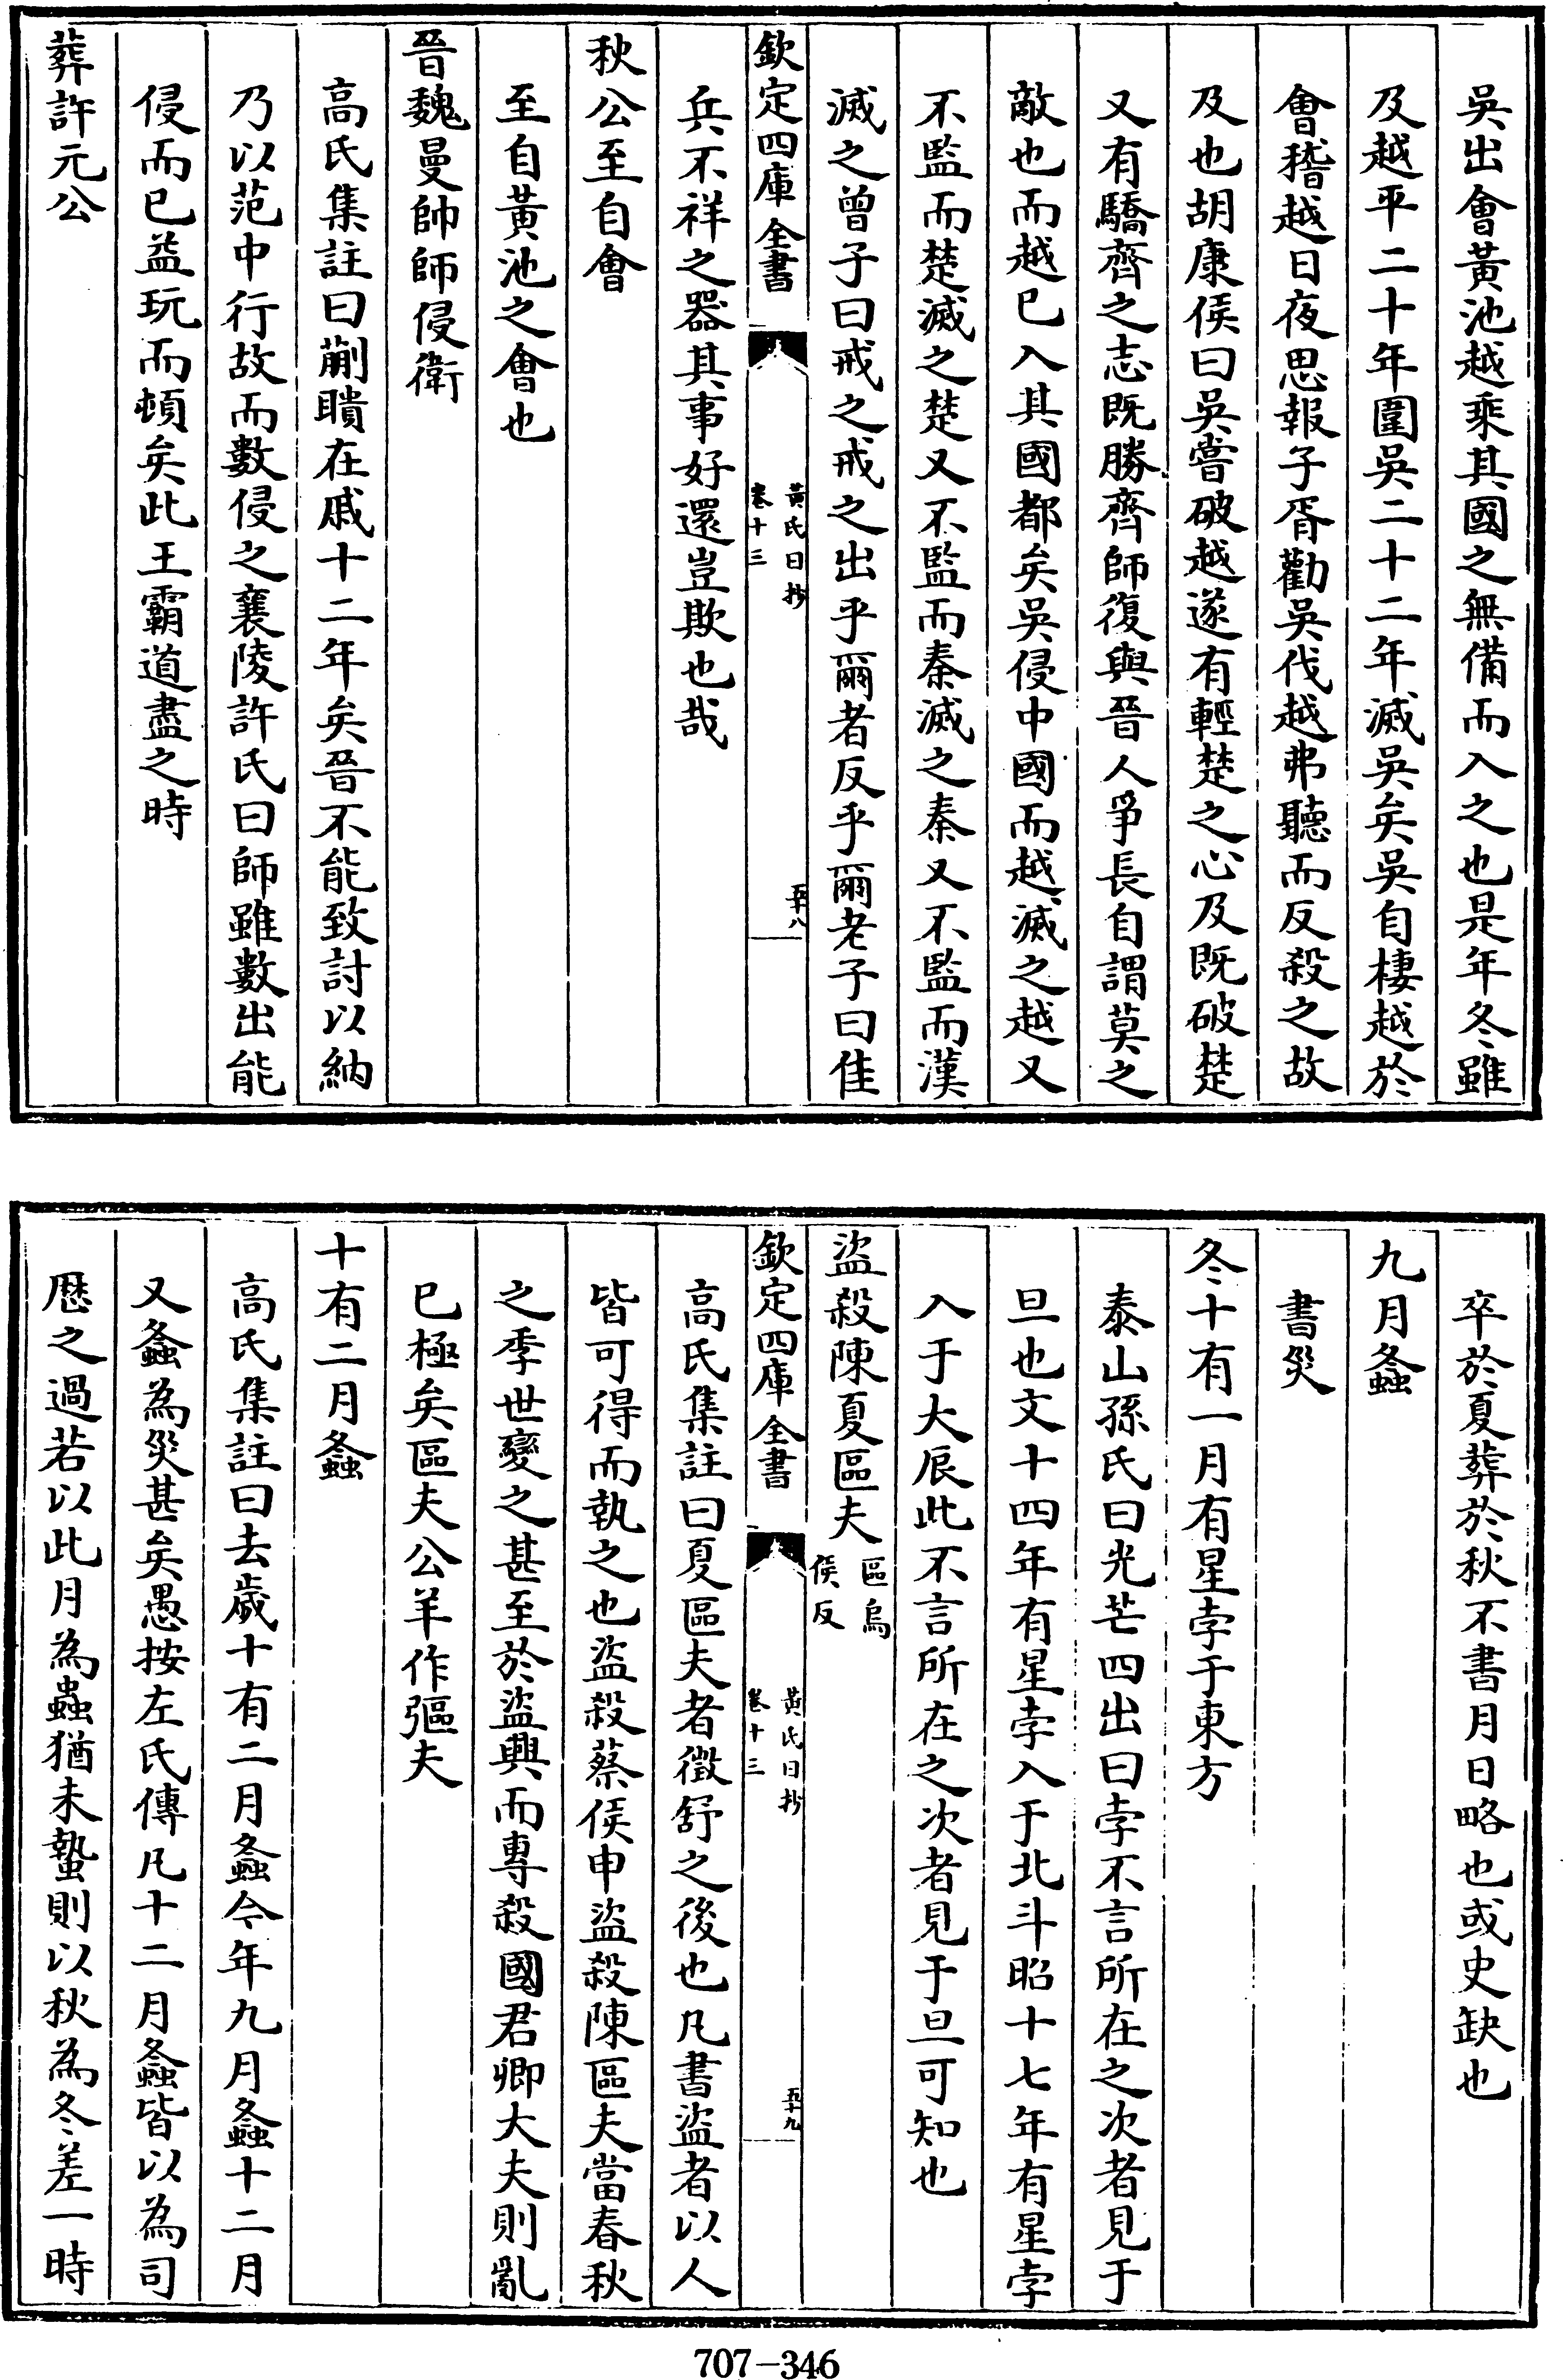 吳出會黃池越乘其國之無備而入之也是年冬雖
及越平二十年圍吳二十二年滅吳矣吳自棲越於
會稽越日夜思報子胥勸吳伐越弗聽而反殺之故
及也胡康侯曰吳嘗破越遂有輕楚之心及既破楚
又有驕齊之志既勝齊師復與晉人爭長自謂莫之
敵也而越已入其國都矣吳侵中國而越滅之越又
不監而楚滅之楚又不監而秦滅之秦又不監而漢
滅之曾子曰戒之戒之出乎爾者反乎爾老子曰佳
欽定四庫全書
黃氏日抄
卷十三
五十八
兵不祥之器其事好還豈欺也哉
秋公至自會
至自黃池之會也
晉魏曼帥師侵衛
高氏集註曰蒯聵在戚十二年矣晉不能致討以納
乃以范中行故而數侵之襄陵許氏曰師雖數出能
侵而已益玩而頓矣此王霸道盡之時
葬許元公
卒於夏葬於秋不書月日略也或史缺也
九月螽
書災
冬十有一月有星孛于東方
泰山孫氏曰光芒四出曰孛不言所在之次者見于
旦也文十四年有星孛入于北斗昭十七年有星孛
入于大辰此不言所在之次者見于旦可知也
盜殺陳夏區夫區烏
侯反
欽定四庫全書
黃氏日抄
卷十三
五十九
高氏集註曰夏區夫者徵舒之後也凡書盜者以人
皆可得而執之也盜殺蔡侯申盜殺陳區夫當春秋
之季世變之甚至於盜興而專殺國君卿大夫則亂
已極矣區夫公羊作彄夫
十有二月螽
高氏集註曰去歲十有二月螽今年九月螽十二月
又螽為災甚矣愚按左氏傳凡十二月螽皆以為司
歷之過若以此月為蟲猶未蟄則以秋為冬差一時
707-346